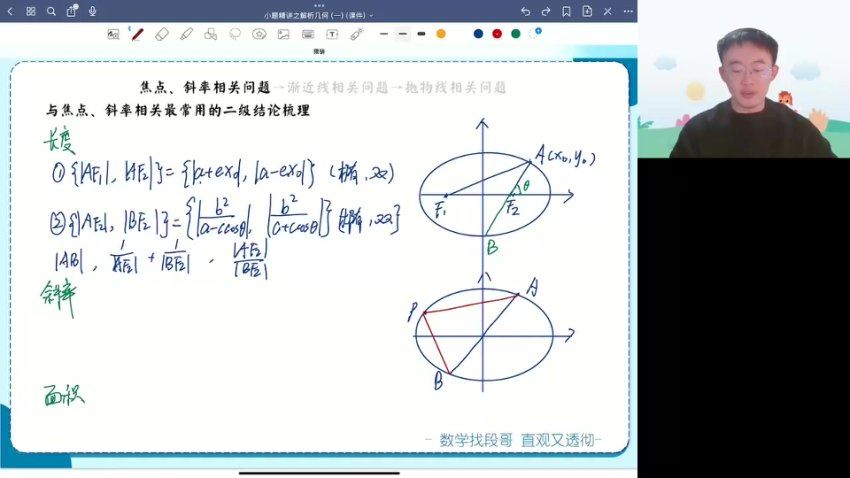 小题精讲之解析几何 (一) (课件)
微调
焦点、斜率相关问题→渐近线相关问题→抛物线相关问题
与焦点、斜率相关最常用的二级结论梳理
长度
① {|AF₁|, |AF₂|} = {|a+ex₀|, |a-ex₀|} (椭圆, 双)
② {|AF₂|, |BF₂|} = {|b²/(a-c cosθ)|, |b²/(a+c cosθ)|} (椭圆, 双)
|AB| , 1/|AF₂| + 1/|BF₂| , |AF₂|/|BF₂|
斜率
面积
A(x₀, y₀)
θ
F₁ F₂
B
A
P
B
- 数学找段哥 直观又透彻-